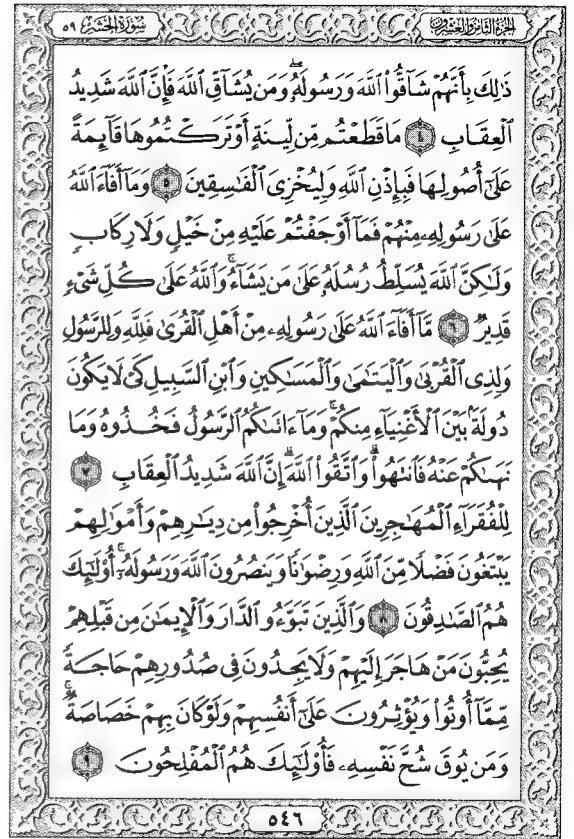 الجزء الثامن والعشرون
سورة الحشر ٥٩
ذَٰلِكَ بِأَنَّهُمْ شَآقُّوا۟ ٱللَّهَ وَرَسُولَهُۥ ۖ وَمَن يُشَآقِّ ٱللَّهَ فَإِنَّ ٱللَّهَ شَدِيدُ
ٱلْعِقَابِ ٤ مَا قَطَعْتُم مِّن لِّينَةٍ أَوْ تَرَكْتُمُوهَا قَآئِمَةً
عَلَىٰٓ أُصُولِهَا فَبِإِذْنِ ٱللَّهِ وَلِيُخْزِىَ ٱلْفَـٰسِقِينَ ٥ وَمَآ أَفَآءَ ٱللَّهُ
عَلَىٰ رَسُولِهِۦ مِنْهُمْ فَمَآ أَوْجَفْتُمْ عَلَيْهِ مِنْ خَيْلٍ وَلَا رِكَابٍ
وَلَـٰكِنَّ ٱللَّهَ يُسَلِّطُ رُسُلَهُۥ عَلَىٰ مَن يَشَآءُ ۚ وَٱللَّهُ عَلَىٰ كُلِّ شَىْءٍ
قَدِيرٌ ٦ مَّآ أَفَآءَ ٱللَّهُ عَلَىٰ رَسُولِهِۦ مِنْ أَهْلِ ٱلْقُرَىٰ فَلِلَّهِ وَلِلرَّسُولِ
وَلِذِى ٱلْقُرْبَىٰ وَٱلْيَتَـٰمَىٰ وَٱلْمَسَـٰكِينِ وَٱبْنِ ٱلسَّبِيلِ كَىْ لَا يَكُونَ
دُولَةًۢ بَيْنَ ٱلْأَغْنِيَآءِ مِنكُمْ ۚ وَمَآ ءَاتَىٰكُمُ ٱلرَّسُولُ فَخُذُوهُ وَمَا
نَهَىٰكُمْ عَنْهُ فَٱنتَهُوا۟ ۚ وَٱتَّقُوا۟ ٱللَّهَ ۖ إِنَّ ٱللَّهَ شَدِيدُ ٱلْعِقَابِ ٧
لِلْفُقَرَآءِ ٱلْمُهَـٰجِرِينَ ٱلَّذِينَ أُخْرِجُوا۟ مِن دِيَـٰرِهِمْ وَأَمْوَٰلِهِمْ
يَبْتَغُونَ فَضْلًا مِّنَ ٱللَّهِ وَرِضْوَٰنًا وَيَنصُرُونَ ٱللَّهَ وَرَسُولَهُۥٓ ۚ أُو۟لَـٰٓئِكَ
هُمُ ٱلصَّـٰدِقُونَ ٨ وَٱلَّذِينَ تَبَوَّءُو ٱلدَّارَ وَٱلْإِيمَـٰنَ مِن قَبْلِهِمْ
يُحِبُّونَ مَنْ هَاجَرَ إِلَيْهِمْ وَلَا يَجِدُونَ فِى صُدُورِهِمْ حَاجَةً
مِّمَّآ أُوتُوا۟ وَيُؤْثِرُونَ عَلَىٰٓ أَنفُسِهِمْ وَلَوْ كَانَ بِهِمْ خَصَاصَةٌ ۚ
وَمَن يُوقَ شُحَّ نَفْسِهِۦ فَأُو۟لَـٰٓئِكَ هُمُ ٱلْمُفْلِحُونَ ٩
٥٤٦